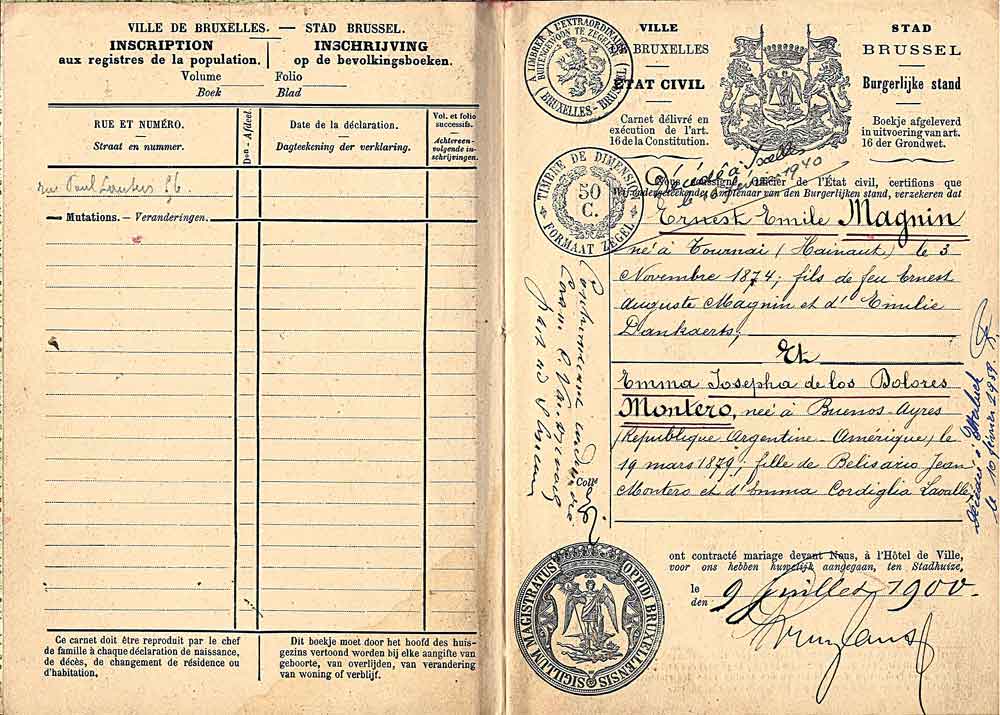 VILLE DE BRUXELLES. — STAD BRUSSEL.
INSCRIPTION
aux registres de la population.
INSCHRIJVING
op de bevolkingsboeken.
Volume
Boek
Folio
Blad
RUE ET NUMÉRO.
Straat en nummer.
Don - Afdeel.
Date de la déclaration.
Dagteekening der verklaring.
Vol. et folio
successifs.
Achtereen-
volgende in-
schrijvingen.
rue Paul Lauters 56.
Mutations. — Veranderingen.
Ce carnet doit être reproduit par le chef
de famille à chaque déclaration de naissance,
de décès, de changement de résidence ou
d'habitation.
Dit boekje moet door het hoofd des huis-
gezins vertoond worden bij elke aangifte van
geboorte, van overlijden, van verandering
van woning of verblijf.
A TIMBRER A L'EXTRAORDINAIRE
BUITENGEWOON TE ZEGELEN
(BRUXELLES - BRUSSEL)
VILLE
BRUXELLES
ÉTAT CIVIL
Carnet délivré en
exécution de l'art.
16 de la Constitution.
STAD
BRUSSEL
Burgerlijke stand
Boekje afgeleverd
in uitvoering van art.
16 der Grondwet.
TIMBRE DE DIMENSION
50
C.
FORMAAT ZEGEL
Décédé à Ixelles
le 1940
Nous soussigné, Officier de l'État civil, certifions que
Wij ondergeteekende, Ambtenaar van den Burgerlijken stand, verzekeren dat
Ernest Emile Magnin
né à Tournai (Hainaut) le 3
Novembre 1874; fils de feu Ernest
Auguste Magnin et d'Emilie
Dankaerts;
Et
Emma Josepha de los Dolores
Montero, née à Buenos-Ayres
(République Argentine-Amérique) le
19 mars 1879; fille de Belisario Jean
Montero et d'Emma Cordiglia Lavalle,
Coll
Décédée à
le 10 février 1959.
ont contracté mariage devant Nous, à l'Hôtel de Ville,
voor ons hebben huwelijk aangegaan, ten Stadhuize,
le
den
9 Juillet 1900.
SIGILLUM MAGISTRATUS OPPIDI BRUXELLENSIS